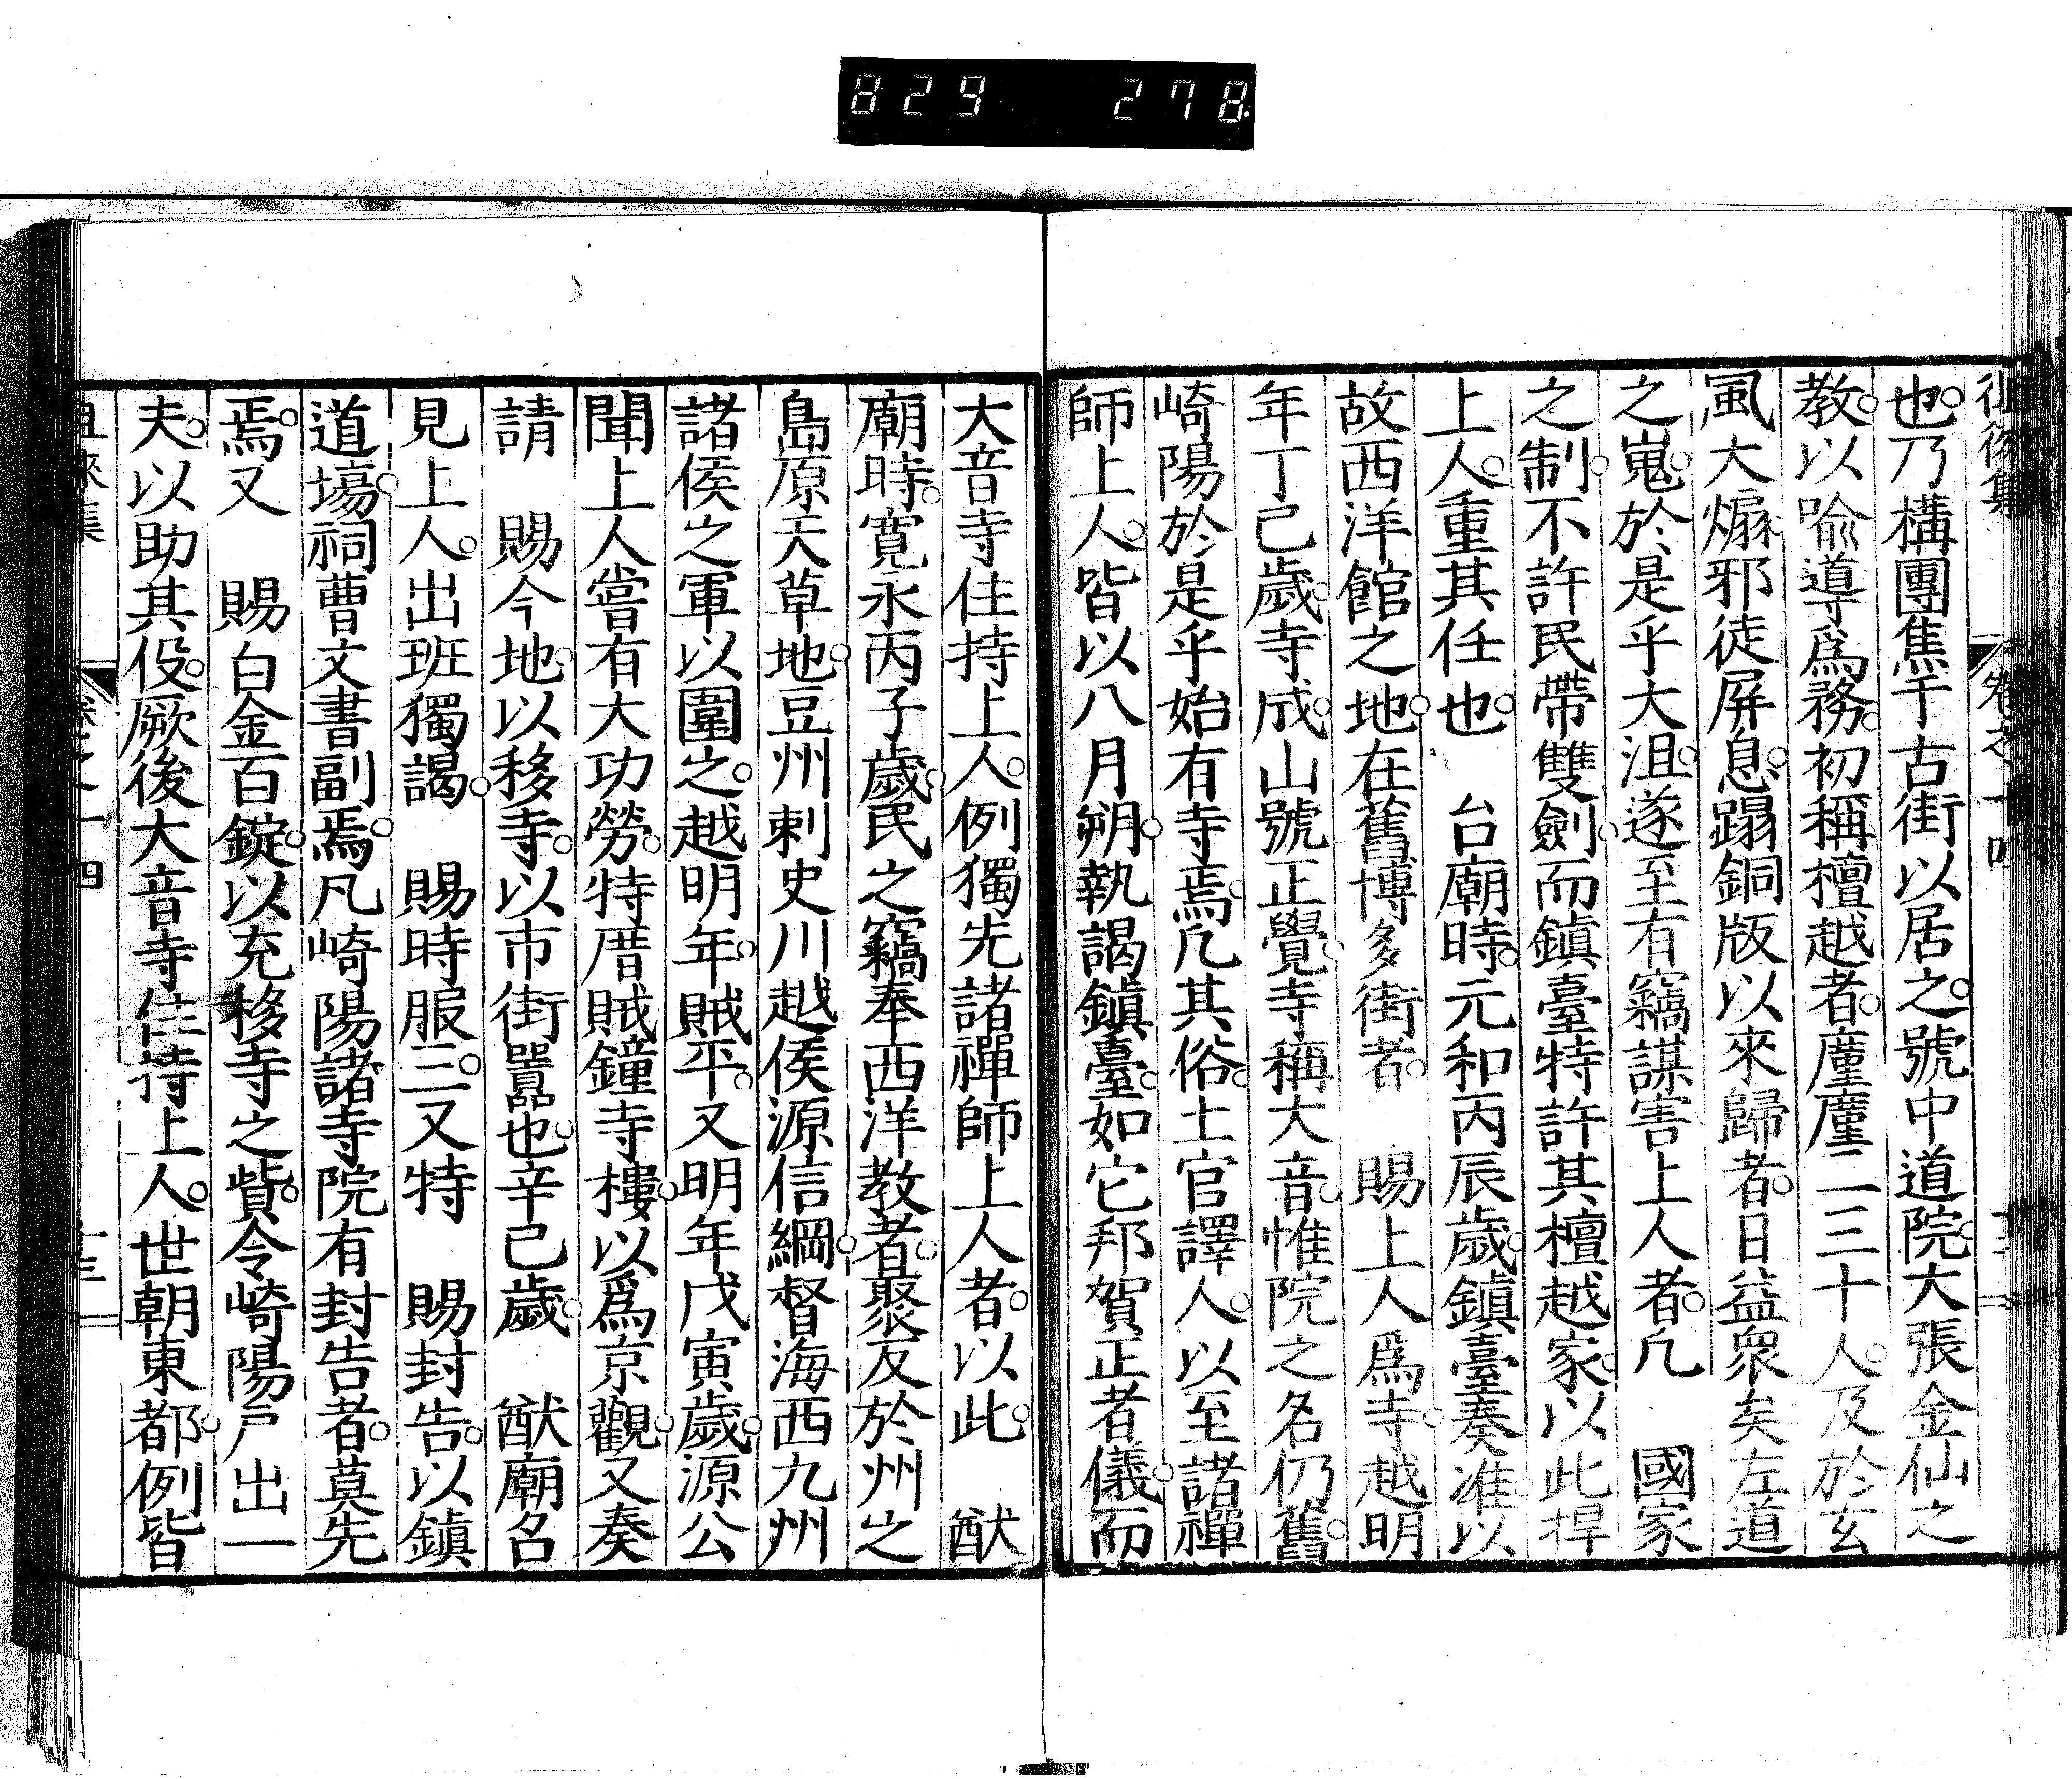 829 278
也。乃構團焦于古街以居之。號中道院。大張金仙之
教。以喩導爲務。初稱檀越者。廑廑二三十人。及於玄
風大煽。邪徒屏息。蹋銅版以來歸者。日益眾矣左道
之嵬。於是乎大沮。遂至有竊謀害上人者。凡　國家
之制。不許民帶雙劍。而鎮臺特許其檀越家。以此捍
上人。重其任也。　台廟時。元和丙辰歲。鎮臺奏准。以
故西洋館之地。在舊博多街者。　賜上人爲寺。越明
年丁己歲。寺成。山號正覺。寺稱大音。惟院之名仍舊。
崎陽於是乎始有寺焉。凡其俗。士官譯人。以至諸禪
師上人。皆以八月朔。執謁鎮臺。如它邦賀正者儀。而
大音寺住持上人。例獨先諸禪師上人者。以此。　猷
廟時。寛永丙子歲。民之竊奉西洋教者。聚反於州之
島原天草地。豆州刺史川越侯源信綱。督海西九州
諸侯之軍以圍之。越明年。賊平。又明年戊寅歲。源公
聞上人嘗有大功勞。特厝賊鐘寺樓。以爲京觀。又奏
請　賜今地。以移寺。以市街囂也。辛己歲。　猷廟名
見上人。出班獨謁。　賜時服三。又特　賜封告。以鎮
道場。祠曹文書副焉。凡崎陽諸寺院有封告者。莫先
焉。又　賜白金百錠。以充移寺之貲。令崎陽戶出一
夫。以助其役。厥後大音寺住持上人。世朝東都。例皆